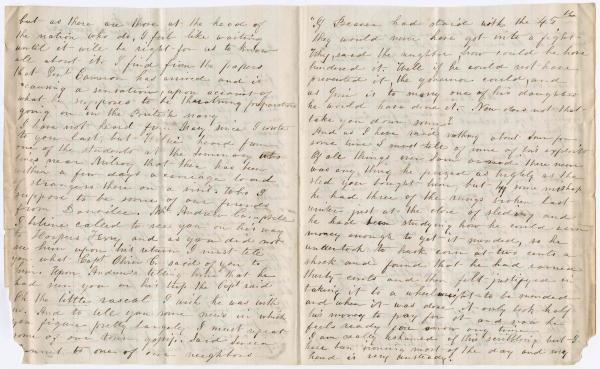 but as there are those at the head of
the nation who do, I feel like waiting
until it will be right for us to know
all about it. I find from the papers
that Capt Cannon has arrived and is
causing a sensation, upon account of
what he supposed to be threatening preparations
going on in the British navy
I have not heard from Mary since I wrote
to you last, but Willie heard from
one of the students at the Seminary who
lives near that there has been
within a few days a carriage load
of strangers there on a visit. Who I
suppose to be some of our friends
from Danville. Andrew Campbell
I believe called to see you on his way
to Harpers Ferry and as you did not
see him upon his return I must tell
you what Capt said of you to
him. Upon Andrew's telling him that he
had seen you on his trip the Capt said
Oh the little rascal I wish he was with
us. And to tell you some news in which
you figure pretty largely I must repeat
some of our town gossip. Said
to one of our neighbors
16
"If had staid with the 45
they would never have got into a fight.
Why, said the neighbor how could he have
hindered it. Well if he could not have
prevented it the governor could, and
as is to marry one of his daughters
he would have done it. Now does not that
take you down some?
And as I have said nothing about for
some time I must tell of some of his exploits
Of all things ever seen or there never
was any thing he prized as highly as the
sled you bought him, but by some mishap
he had three of the rungs broken last
winter just at the close of sledding and
he has been studying how he could earn
money enough to get it mended, so he
undertook to husk corn at two cents a
shock and found that he had earned
thirty cents and then felt justified in
taking it to a wheelwright to be mended
and when it was done it only took half
his money to pay for it and now he
feels ready for snow any time.
I am really ashamed of this scribbling but I
have been ironing most of the day and my
hand is very unsteady.